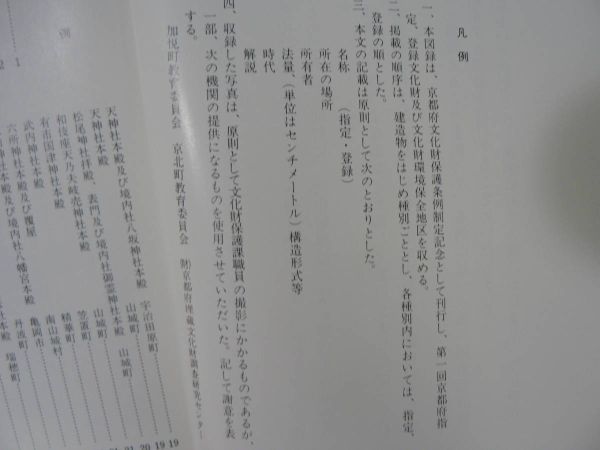 凡例
一、本図録は、京都府文化財保護条例制定記念として刊行し、第一回京都府指
定、登録文化財及び文化財環境保全地区を収める。
二、掲載の順序は、建造物をはじめ種別ごととし、各種別内においては、指定、
登録の順とした。
三、本文の記載は原則として次のとおりとした。
名称　（指定・登録）
所在の場所
所有者
法量、（単位はセンチメートル）構造形式等
時代
解説
四、収録した写真は、原則として文化財保護課職員の撮影にかかるものであるが、
一部、次の機関の提供になるものを使用させていただいた。記して謝意を表
する。
加悦町教育委員会　京北町教育委員会　㈶京都府埋蔵文化財調査研究センター
例
1
2
天神社本殿及び境内社八坂神社本殿　宇治田原町 19
天神社本殿　山城町 19
松尾神社本殿、表門及び境内社御霊神社本殿　山城町 20
和伎座天乃夫岐売神社本殿　山城町 21
有市国津神社本殿　笠置町 21
武内神社本殿　精華町
六所神社本殿及び覆屋　南山城村
神社本殿及び境内社八幡宮本殿　亀岡市
丹波町
瑞穂町